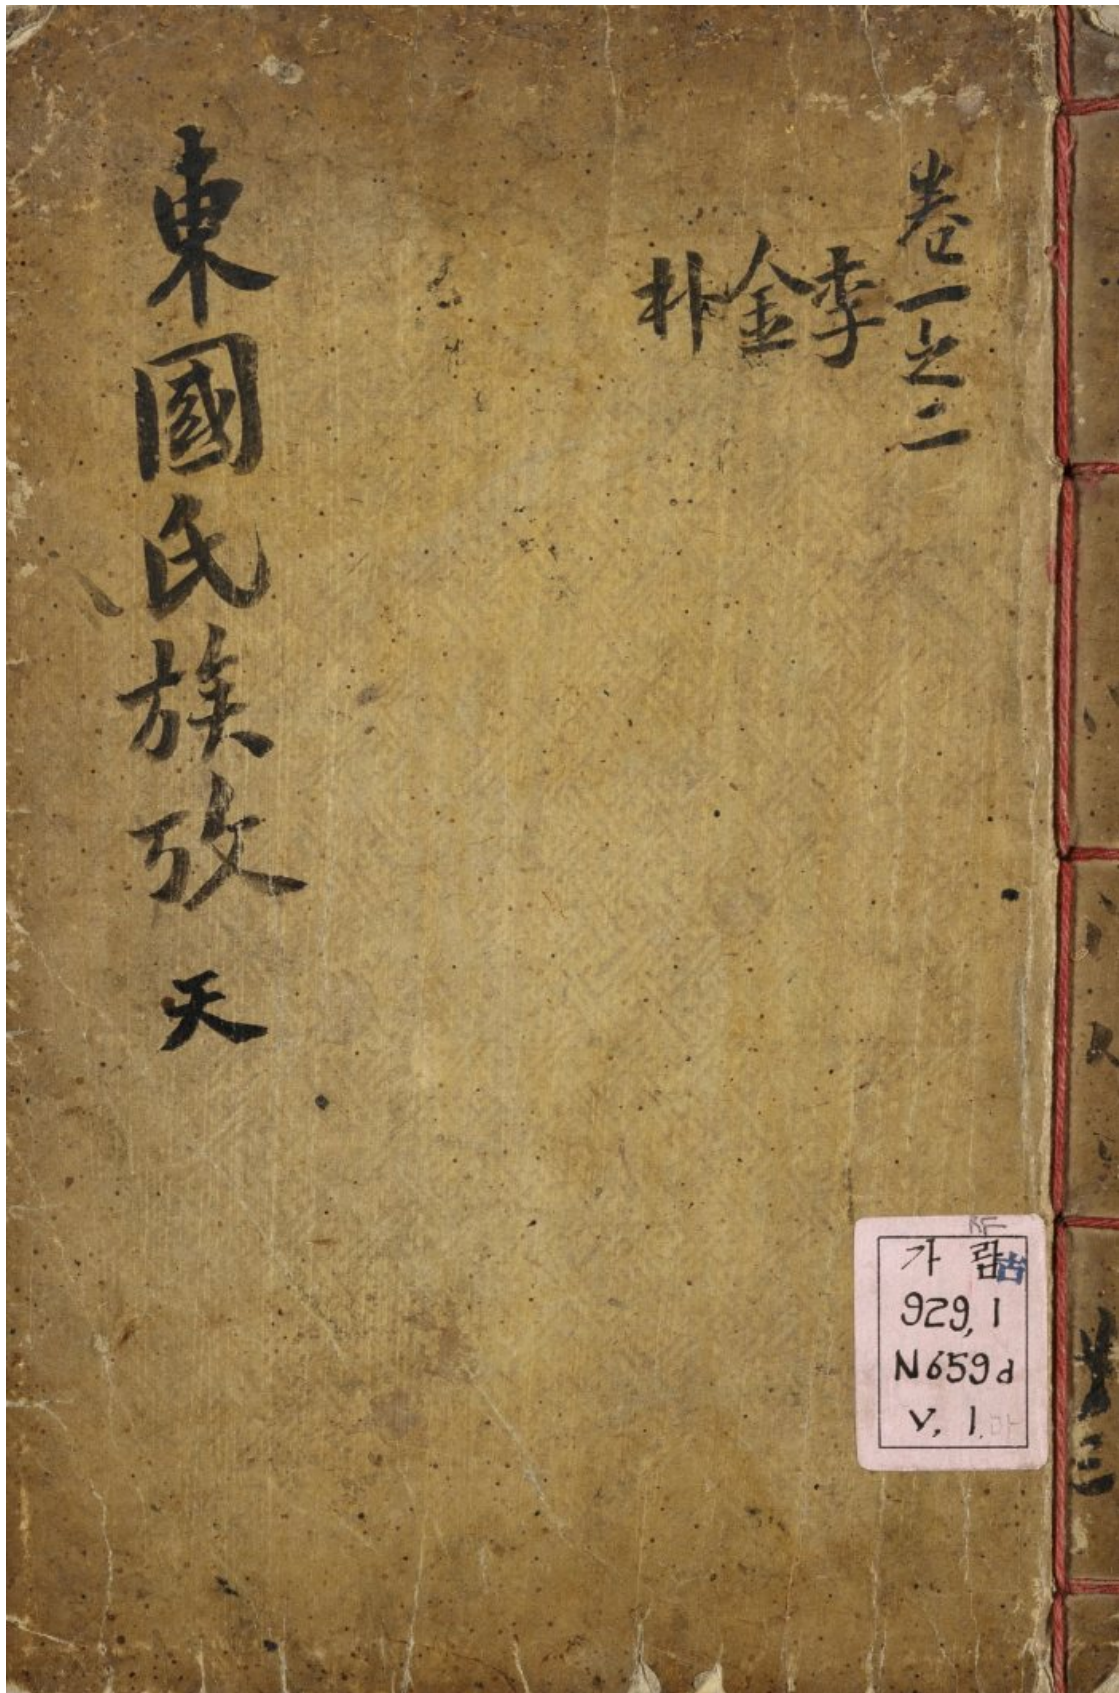 卷一之二
李
金
朴
東國氏族攷 天
가람 古
929.1
N659d
V. 1
共三